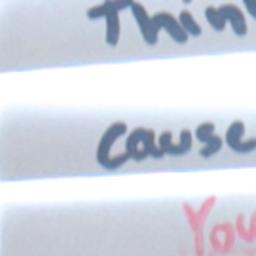 Thin
cause
You